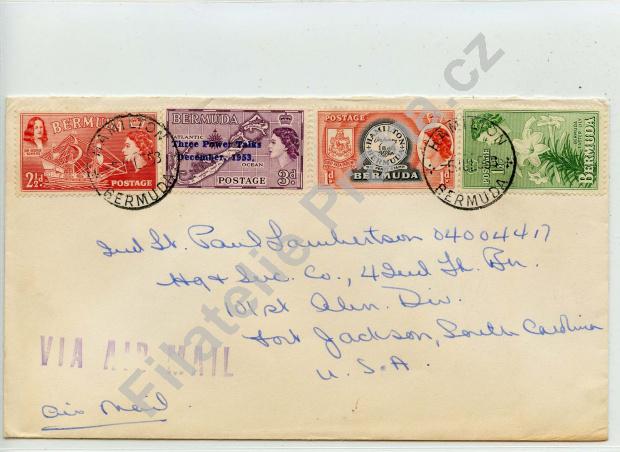 BERMUDA
SIR GEORGE SOMERS
2½d. POSTAGE
BERMUDA
ATLANTIC
Three Power Talks
December, 1953.
OCEAN
POSTAGE 3d.
POSTAGE
HAMILTON
BERMUDA
1d 1d
POSTAGE
BERMUDA
HAMILTON
BERMUDA
HAMILTON
BERMUDA
2nd Lt. Paul Lambertson 04004417
Hq & Svc. Co., 42nd Tk. Bn.
101st Abn. Div.
Fort Jackson, South Carolina
U.S.A.
VIA AIR MAIL
Air Mail
Filatelie Praga.cz